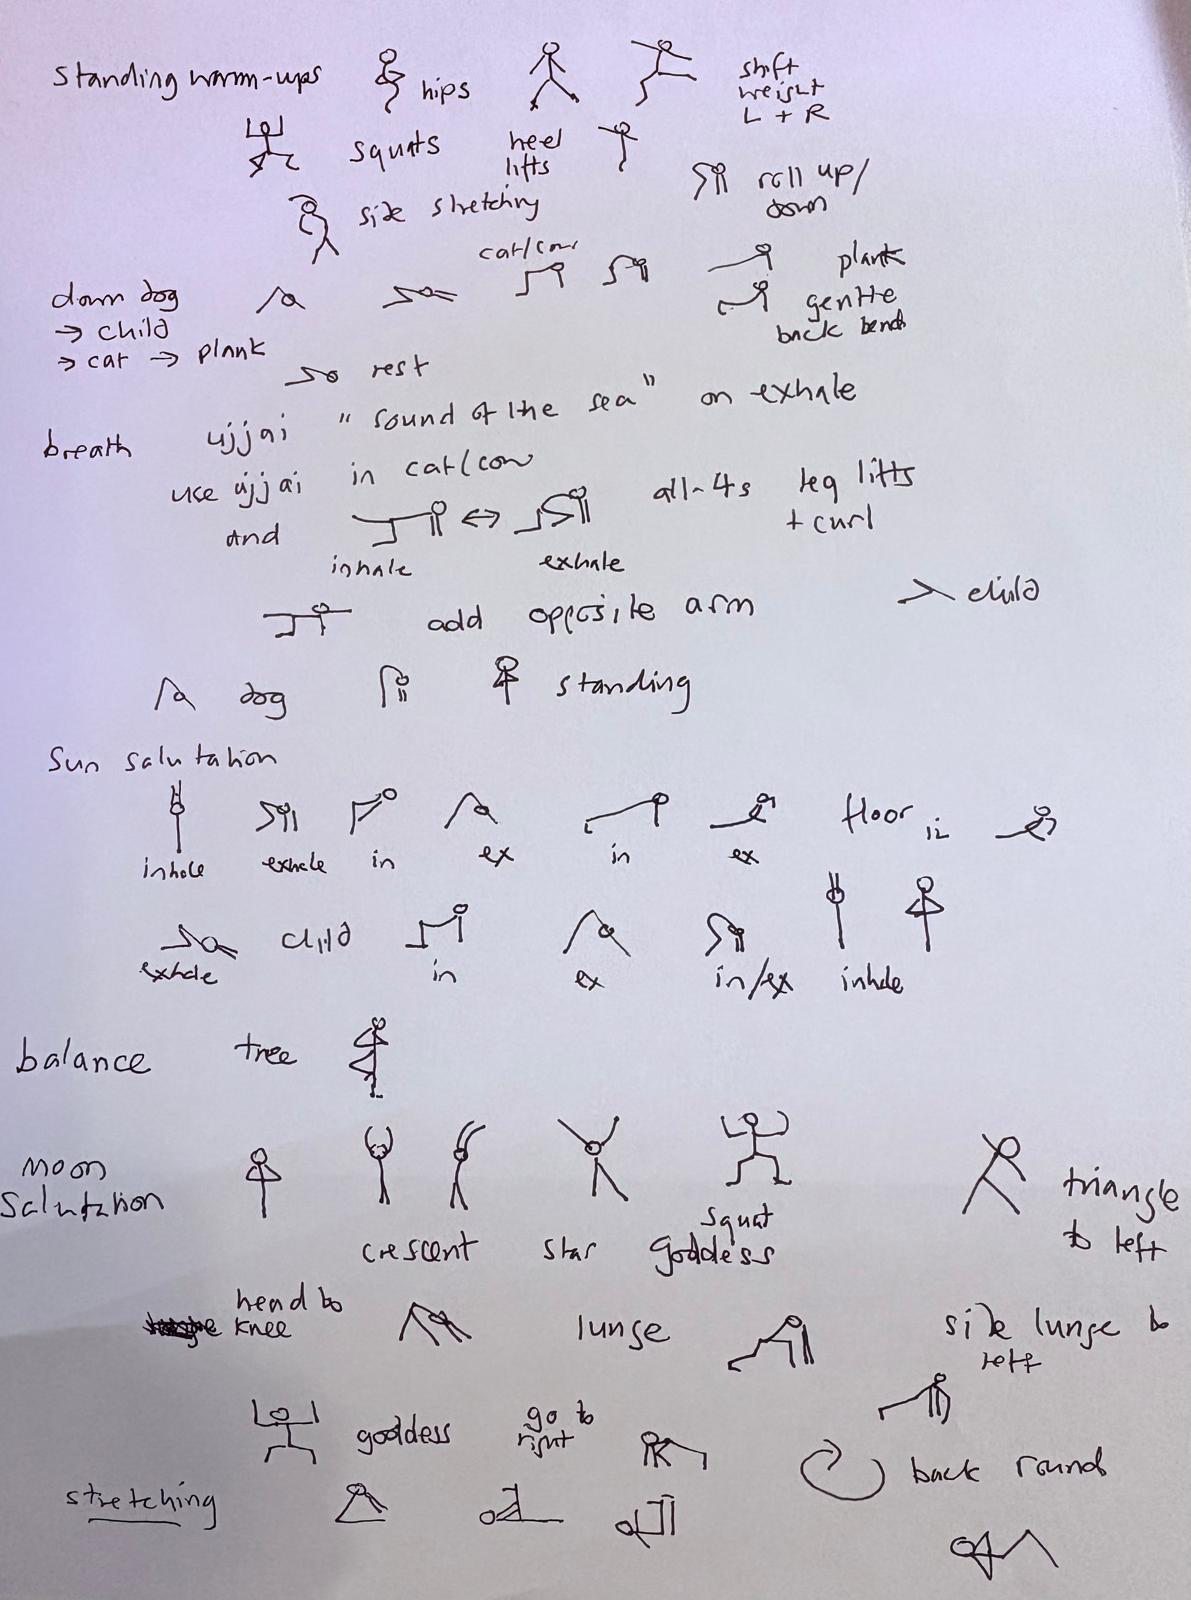 standing warm-ups hips shift
weight
L + R
squats heel
lifts
roll up/
down
side stretching
cat/cow
plank
down dog
→ child
→ cat → plank
gentle
back bend
rest
breath ujjai "sound of the sea" on exhale
use ujjai in cat/cow
And
all-4s leg lifts
+ curl
inhale exhale
add opposite arm child
dog standing
Sun salutation
floor
inhale exhale in ex in ex in
child
exhale in ex in/ex inhale
balance tree
Moon
Salutation
crescent star squat
goddess
triangle
to left
head to
knee
lunge
side lunge to
left
goddess go to
right
back round
stretching